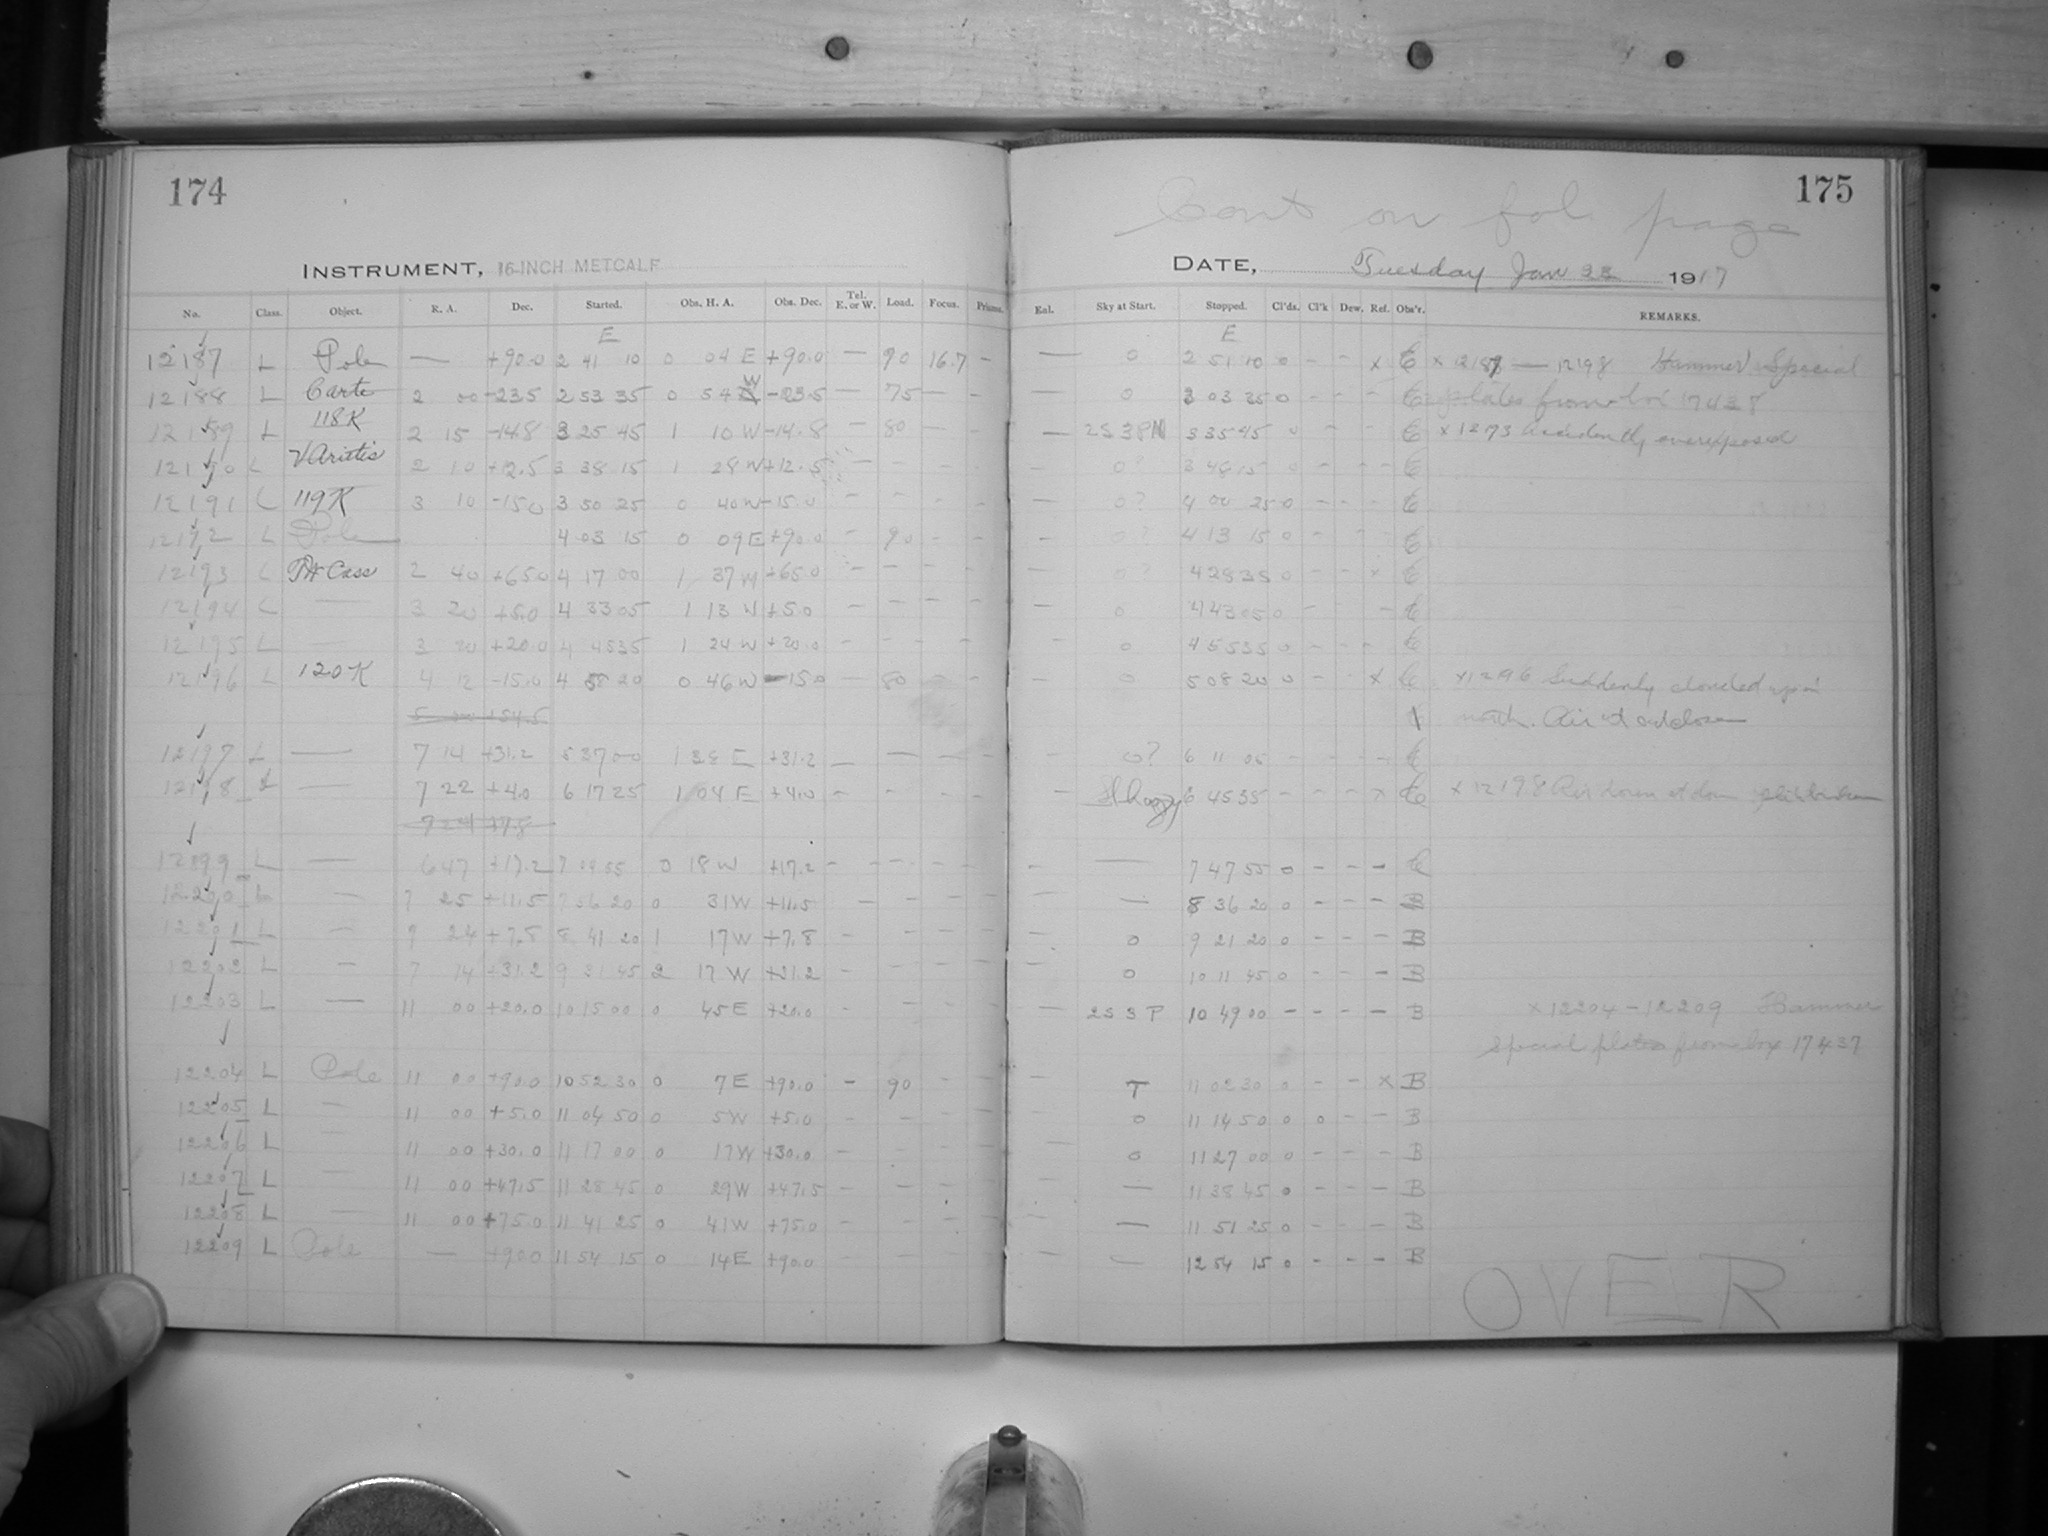 174
INSTRUMENT, 16-INCH METCALF
No. Class. Object. R. A. Dec. Started. Obs. H. A. Obs. Dec. Tel. E. or W. Load. Focus. Prisms.
E
12187 L Pole — +90.0 2 41 10 0 04 E +90.0 — 90 16.7 –
12188 L Carte 2 00 -23.5 2 53 35 0 54 W -23.5 — 75 — –
12189 L 118K 2 15 -14.8 3 25 45 1 10 W -14.8 – 80 – –
12190 L 2 10 +12.5 3 38 15 1 28 W +12.5 – – – –
12191 L 119K 3 10 -15.0 3 50 25 0 40 W -15.0 – – – –
12192 L Pole 4 03 15 0 09 E +90.0 – 90 – –
12193 L Cass 2 40 +65.0 4 17 00 1 37 W +65.0 – – – –
12194 L — 3 20 +5.0 4 33 05 1 13 W +5.0 – – – –
12195 L — 3 20 +20.0 4 45 35 1 24 W +20.0 – – – –
12196 L 120K 4 12 -15.0 4 58 20 0 46 W -15.0 – 80 – –
+54.5
12197 L — 7 14 +31.2 5 37 00 1 38 E +31.2 — — – –
12198 L — 7 22 +4.0 6 17 25 1 04 E +4.0 – – – –
7 24 +7.8
12199 L — 6 47 +17.2 7 0 18 W +17.2 – – – –
12200 L — 7 25 +11.5 7 56 20 0 31 W +11.5 – – – –
12201 L — +7.8 8 41 20 1 17 W +7.8 – – – –
12202 L — 7 14 +31.2 9 31 45 2 17 W – – – –
12203 L — 11 00 +20.0 10 15 00 0 45 E +20.0 – – – –
12204 L Pole 11 00 +90.0 10 52 30 0 7 E +90.0 – 90 – –
12205 L — 11 00 +5.0 11 04 50 0 5 W +5.0 – – – –
12206 L — 11 00 +30.0 11 17 00 0 17 W +30.0 – – – –
12207 L — 11 00 +47.5 11 28 45 0 29 W +47.5 – – – –
12208 L — 11 00 +75.0 11 41 25 0 41 W +75.0 – – – –
12209 L Pole — +90.0 11 54 15 0 14 E +90.0 – – – –
175
Cont on fol. page
DATE, Tuesday Jan 1917
Eal. Sky at Start. Stopped. Cl'ds. Cl'k Dew. Ref. Obs'r. REMARKS.
E
— 0 2 51 10 0 – – x C x 12187 — 12198 Hammer Special
— 0 3 03 35 0 – – – C plates from box 17438
— 3 35 45 0 – – – C x 1273 accidently overexposed
0? 3 48 15 0 – – – C
– 0? 4 00 25 0 – – – C
– 0? 4 13 15 0 – C
0? 0 – – x C
– 0 4 43 05 0 – – C
– 0 4 55 35 0 – – – C
– 0 5 08 20 0 – – x C x 1296 Suddenly clouded up in
north.
– 0? 6 11 05 – – – C
– 6 45 35 – – – x C x 12198
– — 7 47 55 0 – – – C
– — 8 36 20 0 – – – B
– 0 9 21 20 0 – – – B
– 0 10 11 45 0 – – – B
– 10 49 00 – – – – B x 12204 – 12209 Hammer
special plates from box 17437
T 11 02 30 0 – – x B
0 11 14 50 0 0 – – B
– 0 11 27 00 0 – – – B
– — 11 38 45 0 – – – B
– — 11 51 25 0 – – – B
– — 12 54 15 0 – – – B
OVER